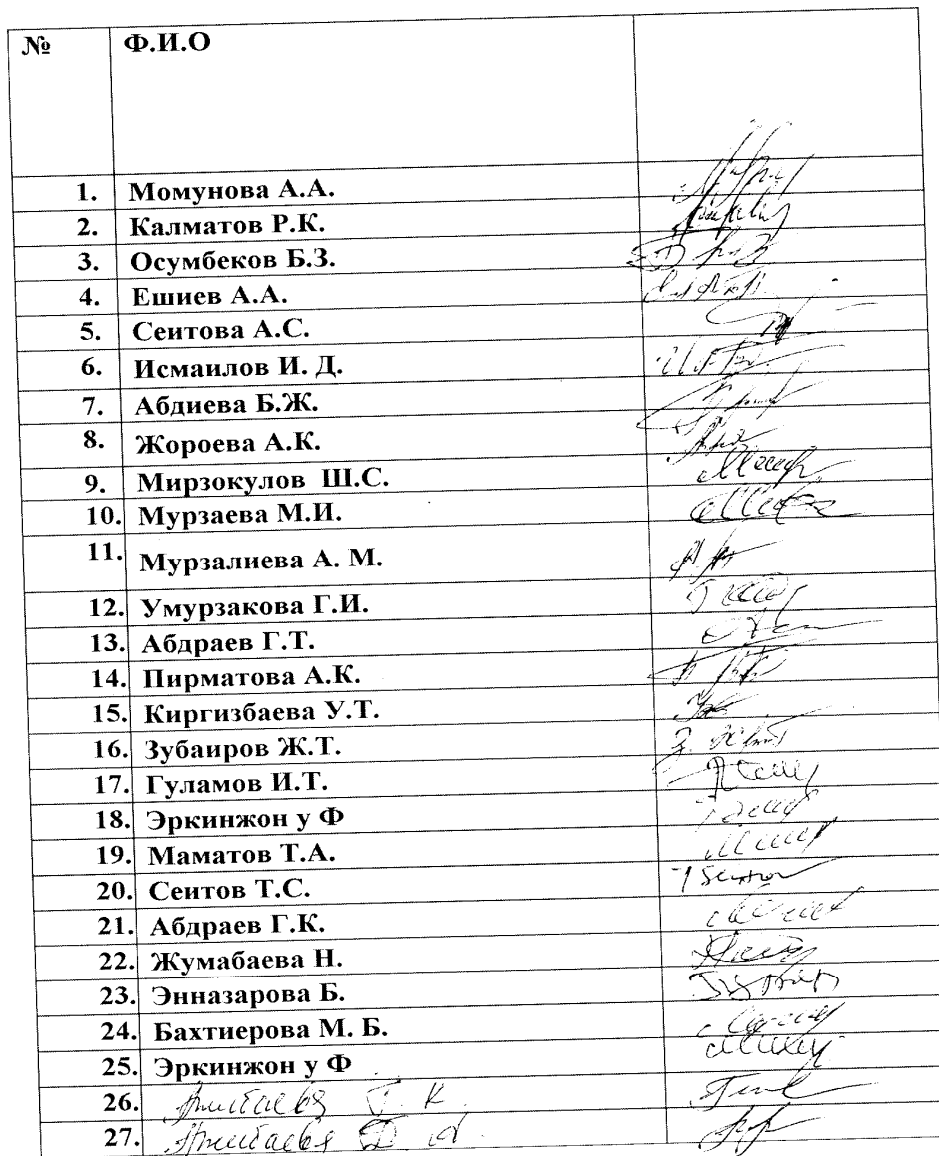 № Ф.И.О
1. Момунова А.А.
2. Калматов Р.К.
3. Осумбеков Б.З.
4. Ешиев А.А.
5. Сеитова А.С.
6. Исмаилов И. Д.
7. Абдиева Б.Ж.
8. Жороева А.К.
9. Мирзокулов Ш.С.
10. Мурзаева М.И.
11. Мурзалиева А. М.
12. Умурзакова Г.И.
13. Абдраев Г.Т.
14. Пирматова А.К.
15. Киргизбаева У.Т.
16. Зубаиров Ж.Т.
17. Гуламов И.Т.
18. Эркинжон у Ф
19. Маматов Т.А.
20. Сеитов Т.С.
21. Абдраев Г.К.
22. Жумабаева Н.
23. Энназарова Б.
24. Бахтиерова М. Б.
25. Эркинжон у Ф
26.
27.